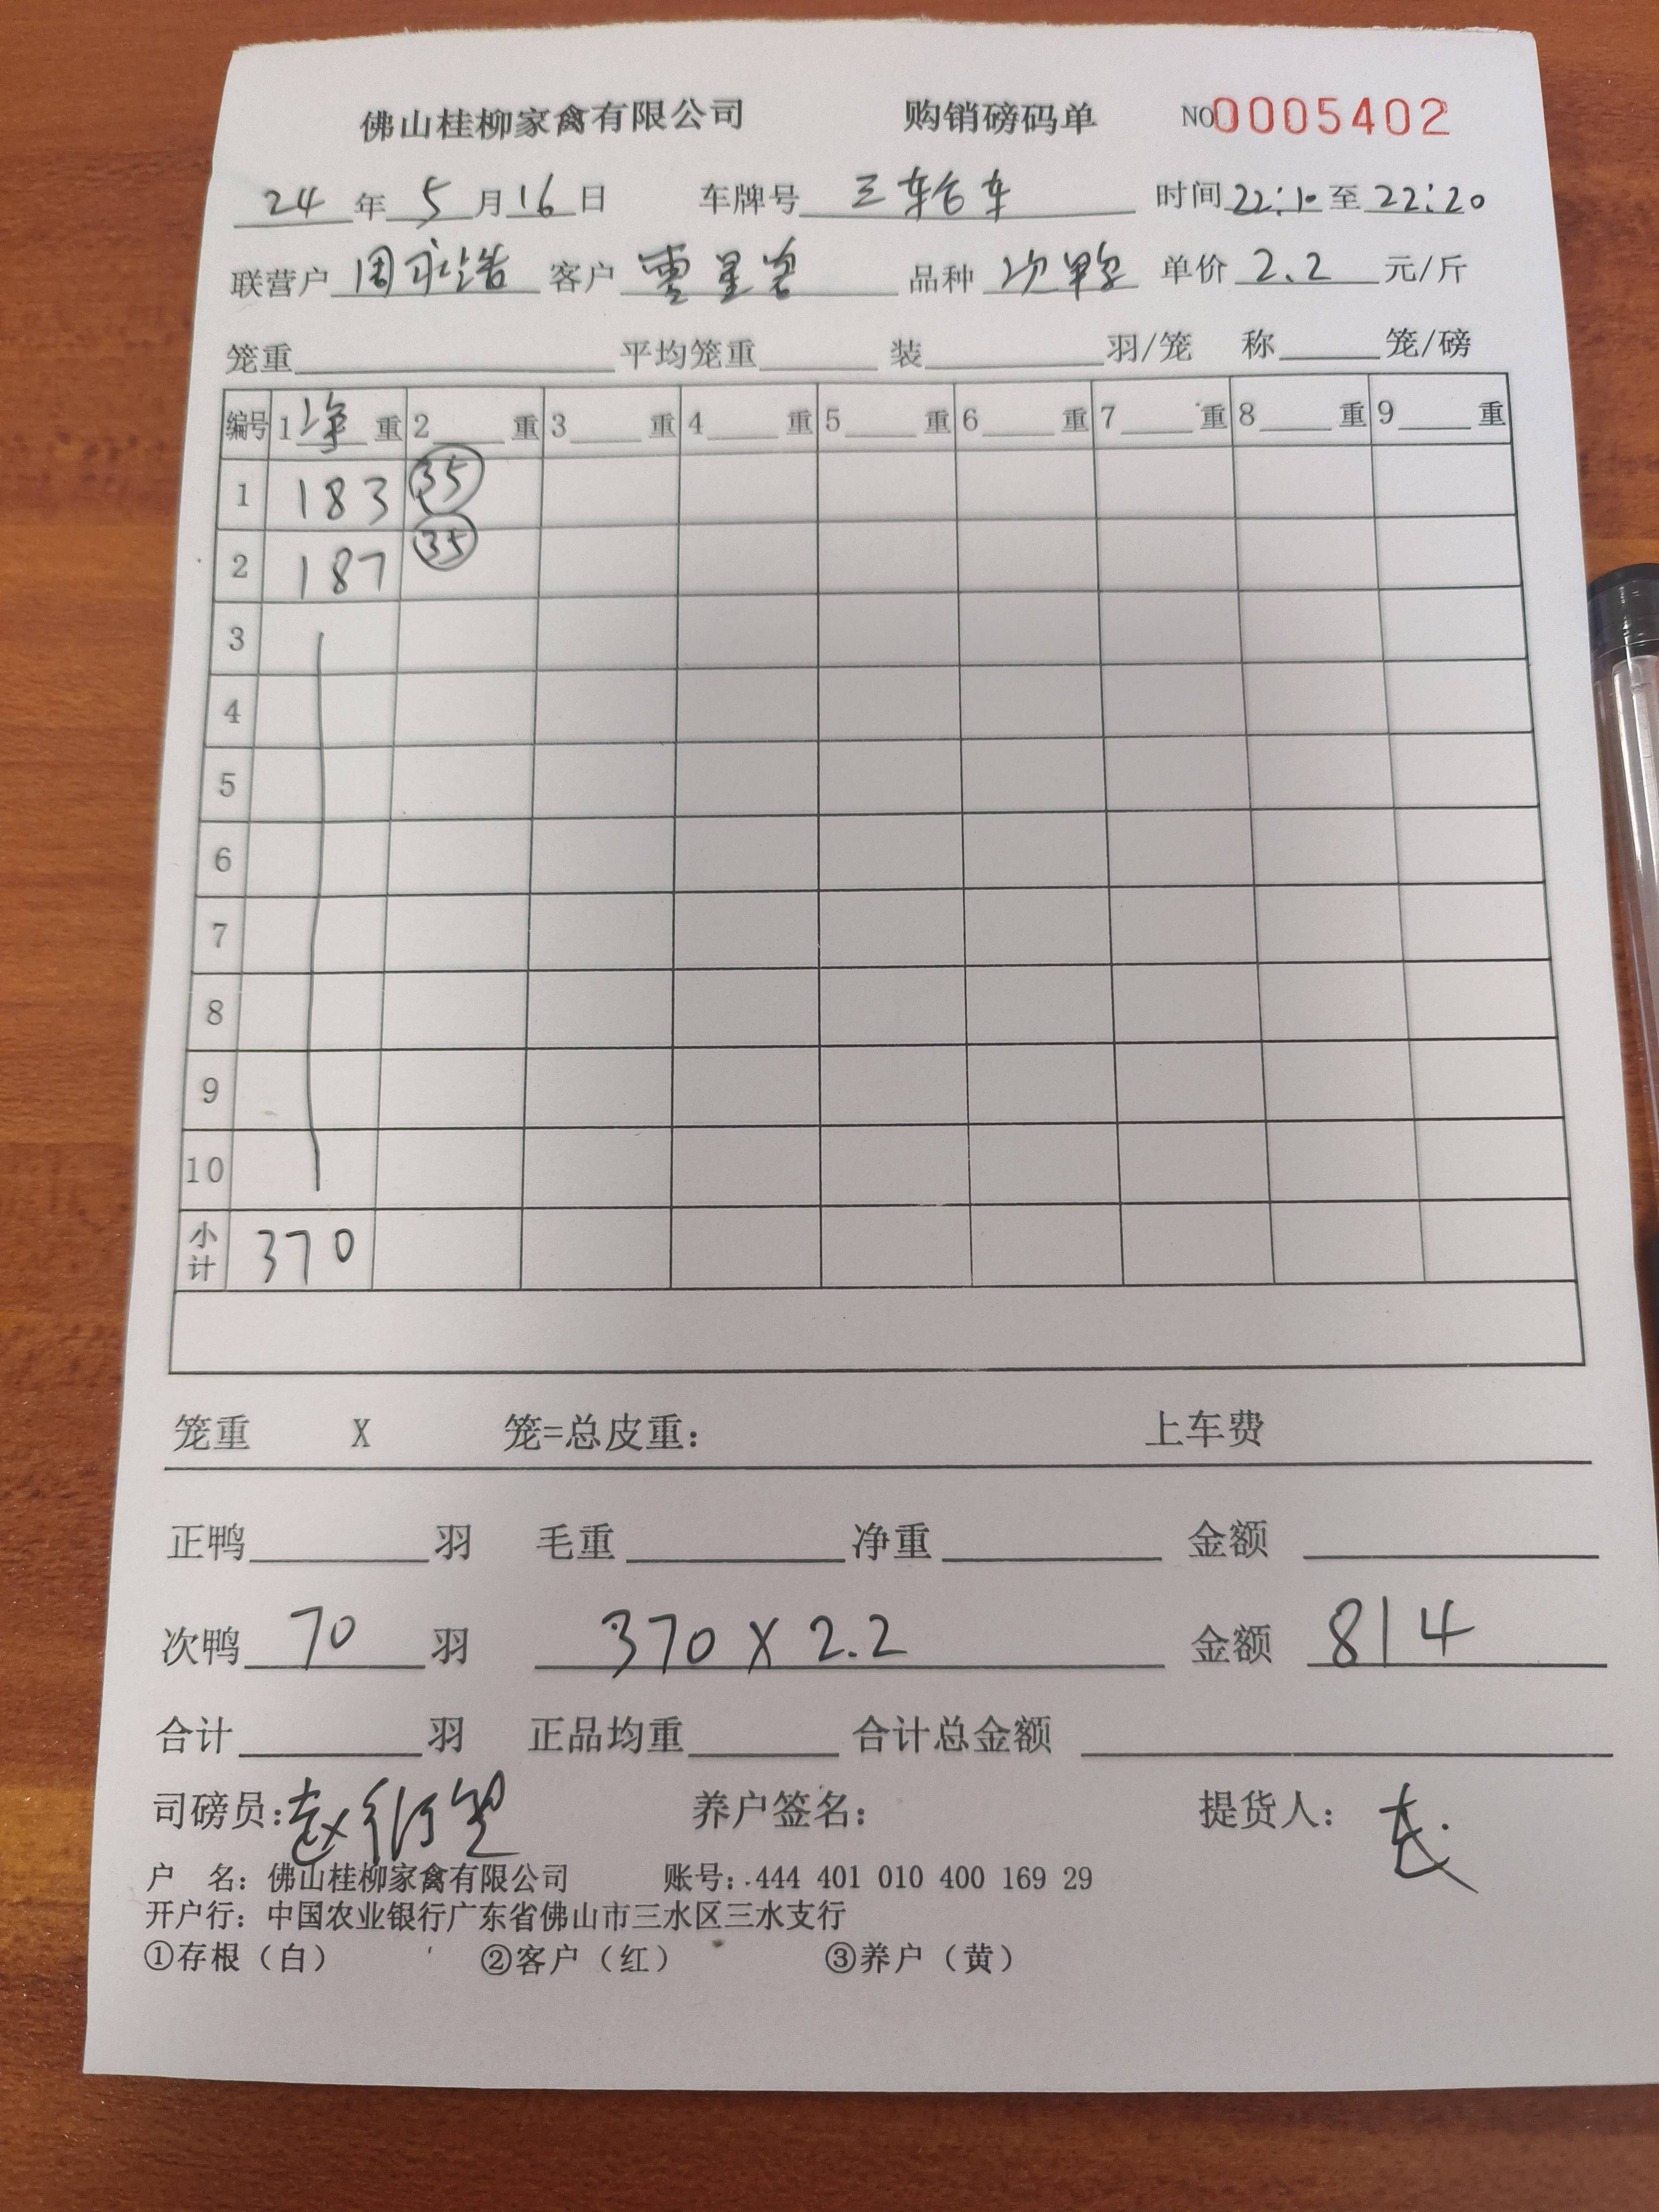 佛山桂柳家禽有限公司 购销磅码单 NO0005402
24年5月16日 车牌号 三轮车 时间22:10至22:20
联营户 周永浩 客户 品种 次鸭 单价 2.2 元/斤
笼重 平均笼重 装 羽/笼 称 笼/磅
编号 1净重 2 重 3 重 4 重 5 重 6 重 7 重 8 重 9 重
1 183 35
2 187 35
3
4
5
6
7
8
9
10
小计 370
笼重 X 笼=总皮重: 上车费
正鸭 羽 毛重 净重 金额
次鸭 70 羽 370 X 2.2 金额 814
合计 羽 正品均重 合计总金额
司磅员: 养户签名: 提货人:
户 名: 佛山桂柳家禽有限公司 账号: 444 401 010 400 169 29
开户行: 中国农业银行广东省佛山市三水区三水支行
①存根（白） ②客户（红） ③养户（黄）